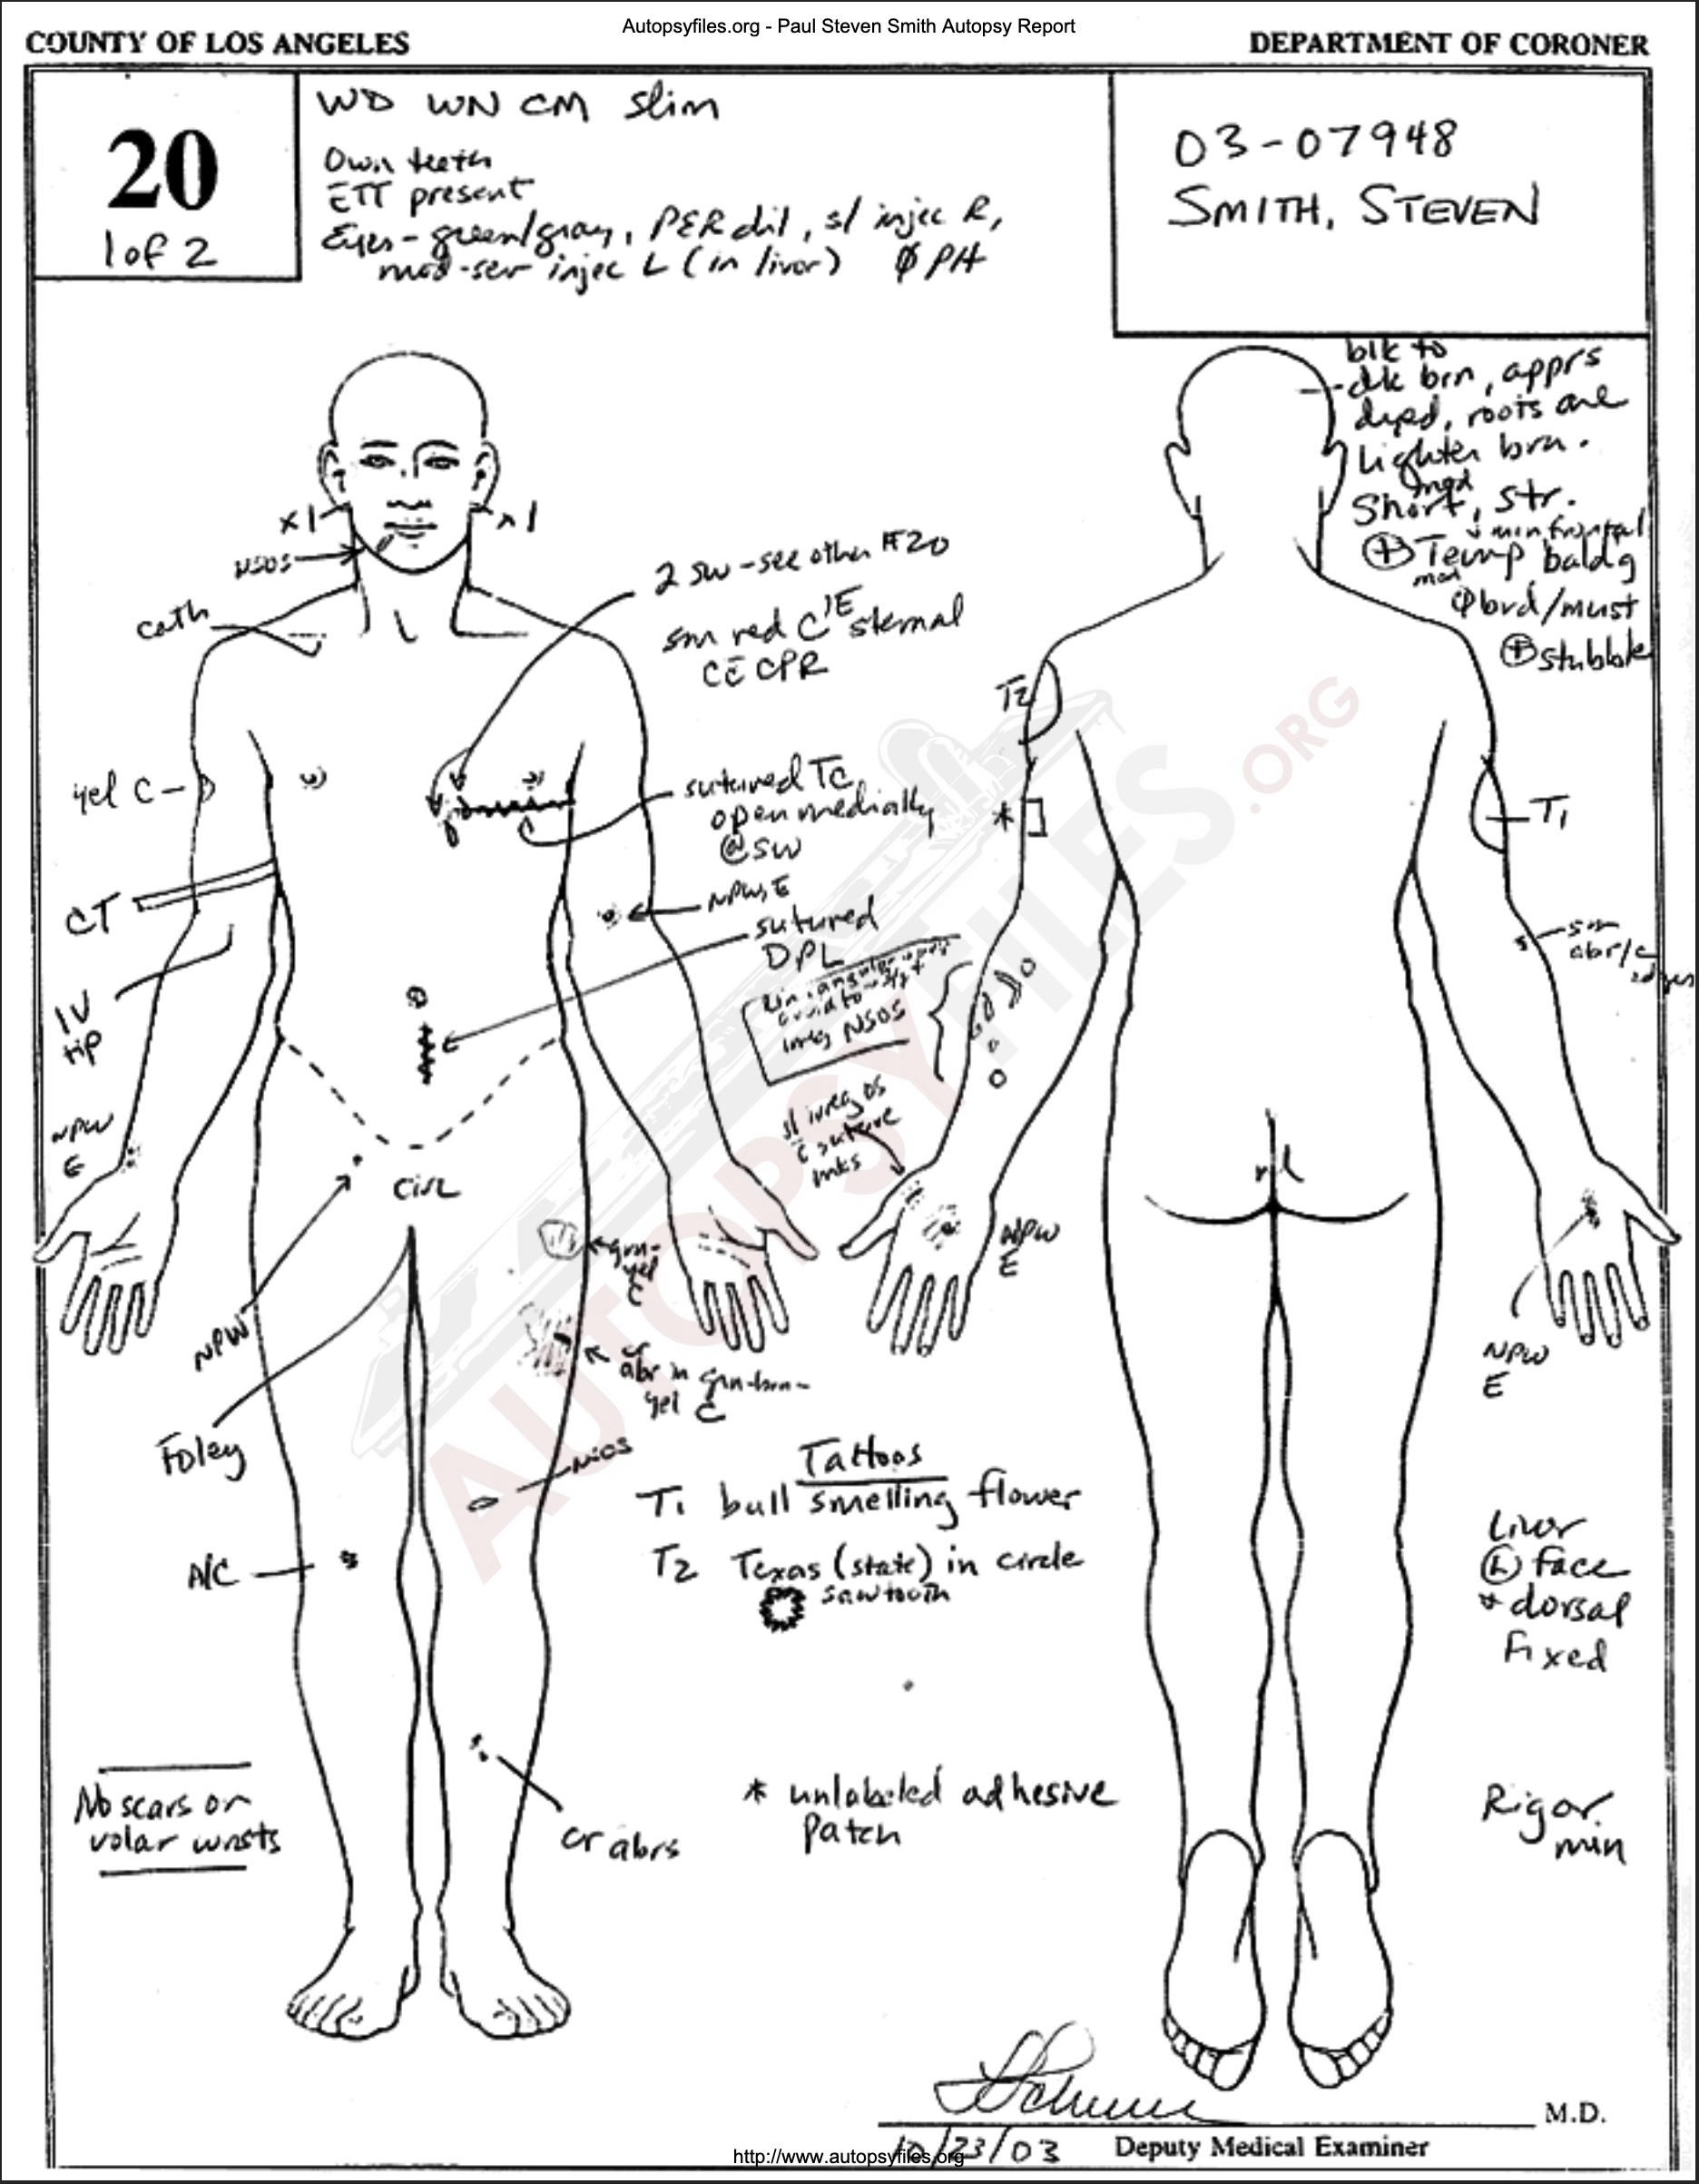 Autopsyfiles.org - Paul Steven Smith Autopsy Report
COUNTY OF LOS ANGELES
DEPARTMENT OF CORONER
20
1 of 2
WD WN CM slim
Own teeth
ETT present
Eyes - green/gray, PER dil, sl injec R,
mod-sev injec L (in livor) Ø PH
03-07948
SMITH, STEVEN
blk to
dk brn, apprs
dyed, roots are
lighter brn.
mod
Short, str.
+ min frontal
⊕ Temp baldg
mod
φ brd/must
⊕ stubble
x1
x1
NSOS
cath
2 SW - see other #20
sm red C E sternal
C̄ CPR
yel C
sutured TC
open medially
@ SW
T2
*
T1
CT
NPW, E
sutured
DPL
sm
abr/C
IV
tip
irreg NSOS
sl irreg OS
c̄ suture
mks
NPW
E
circ
NPW
E
grn-
yel
C
NPW
NPW
E
abr in grn-brn-
yel C
Foley
NIOS
Tattoos
T1 bull smelling flower
T2 Texas (state) in circle
sawtooth
A/C
Livor
Ⓛ face
+ dorsal
Fixed
No scars on
volar wrists
cr abrs
* unlabeled adhesive
patch
Rigor
min
M.D.
10/23/03
Deputy Medical Examiner
http://www.autopsyfiles.org
AUTOPSYFILES.ORG